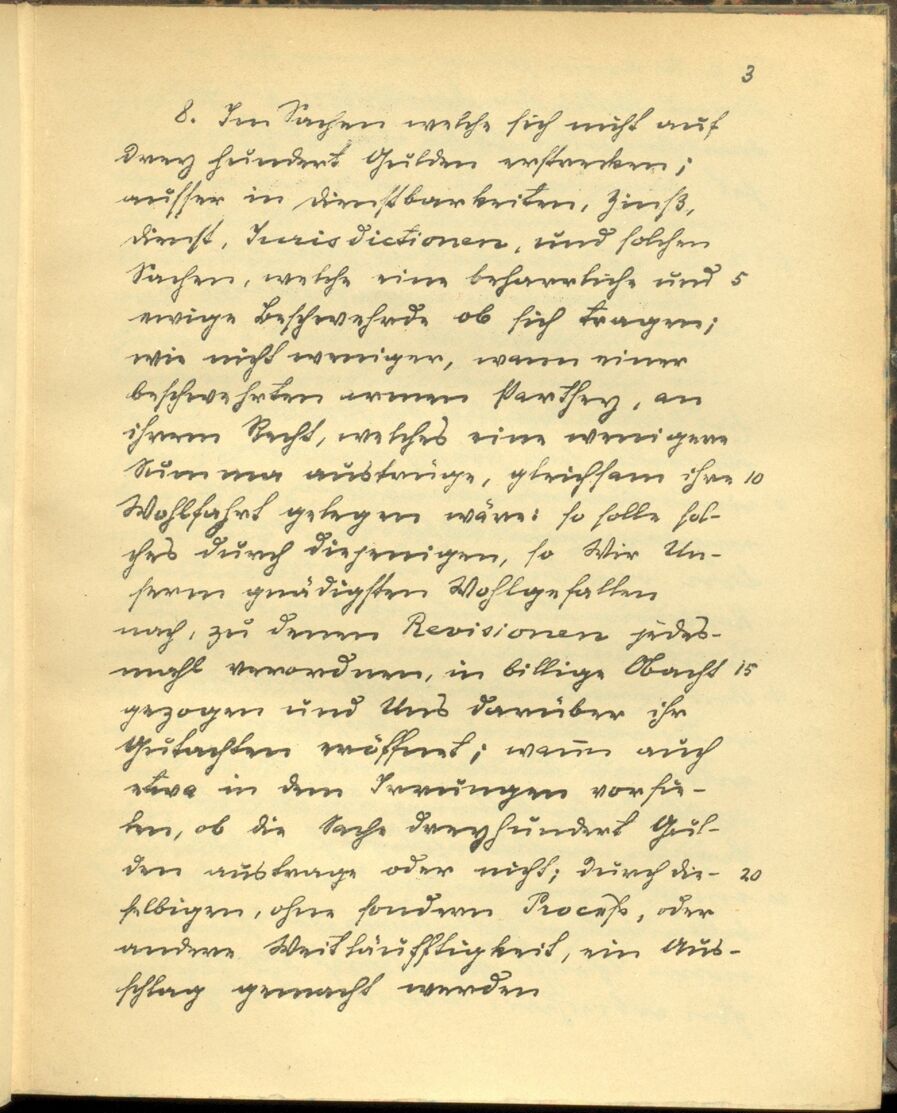 3
8. In Sachen welche sich nicht auf
drey hundert Gulden erstrecken;
ausser in dienstbarkeiten, Zinß,
dienst, Jurisdictionen, und solchen
Sachen, welche eine beharrliche und 5
ewige Beschwehrde ob sich tragen;
wie nicht weniger, wann einer
beschwehrten armen Parthey, an
ihrem Recht, welches eine wenigere
Summa austrüge, gleichsam ihre 10
Wohlfahrt gelegen wäre: so solle sol-
ches durch diejenigen, so Wir Un-
serm gnädigsten Wohlgefallen
nach, zu denen Revisionen jedes-
mahl verordnen, in billige Obacht 15
gezogen und Uns darüber ihr
Gutachten eröffnet; wann auch
etwa in dem Irrungen vorfie-
len, ob die Sache dreyhundert Gul-
den austrage oder nicht; durch die- 20
selbigen, ohne sondern Proceß, oder
andere Weitläufftigkeit, ein Aus-
schlag gemacht werden